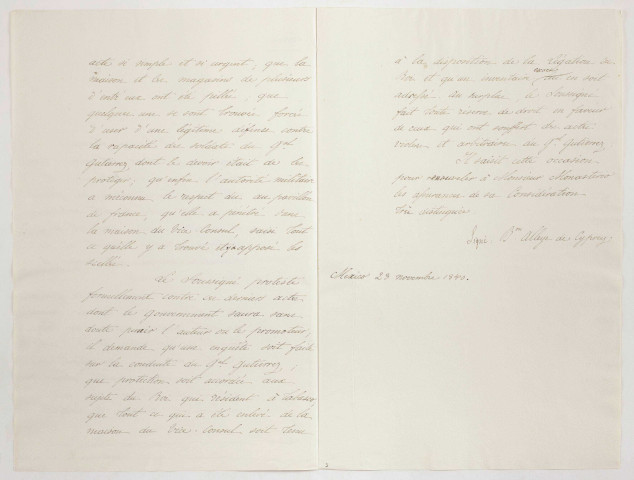 acte si simple et si urgent, que la
maison et les magasins de plusieurs
d'entre eux ont été pillés, que
quelques uns se sont trouvés forcés
d'user d'une légitime défense contre
la rapacité des soldats du Gal
Gutierrez dont le devoir était de les
protéger, qu'enfin l'autorité militaire
a méconnu le respect dû au pavillon
de france, qu'elle a pénétré dans
la maison du Vice Consul, saisi tout
ce qu'elle y a trouvé et y a apposé les
scellés.
Le Soussigné proteste
formellement contre ces derniers actes
dont le gouvernement saura sans
doute punir l'auteur ou le promoteur,
il demande qu'une enquête soit faite
sur la conduite du Gal Gutierrez,
que protection soit accordée aux
sujets du Roi qui résident à
que tout ce qui a été enlevé de la
maison du Vice-Consul soit tenu
à la disposition de la légation du
Roi et qu'un inventaire en soit
adressé. Au surplus, le Soussigné
fait toute réserve de droit en faveur
de ceux qui ont souffert des actes
violens et arbitraires du Gl Gutierrez.
Il saisit cette occasion
pour renouveler à Monsieur Monasterio
les assurances de sa Considération
très distinguée
Signé: Bon Alleye de Cyprey.
Mexico 28 novembre 1840.